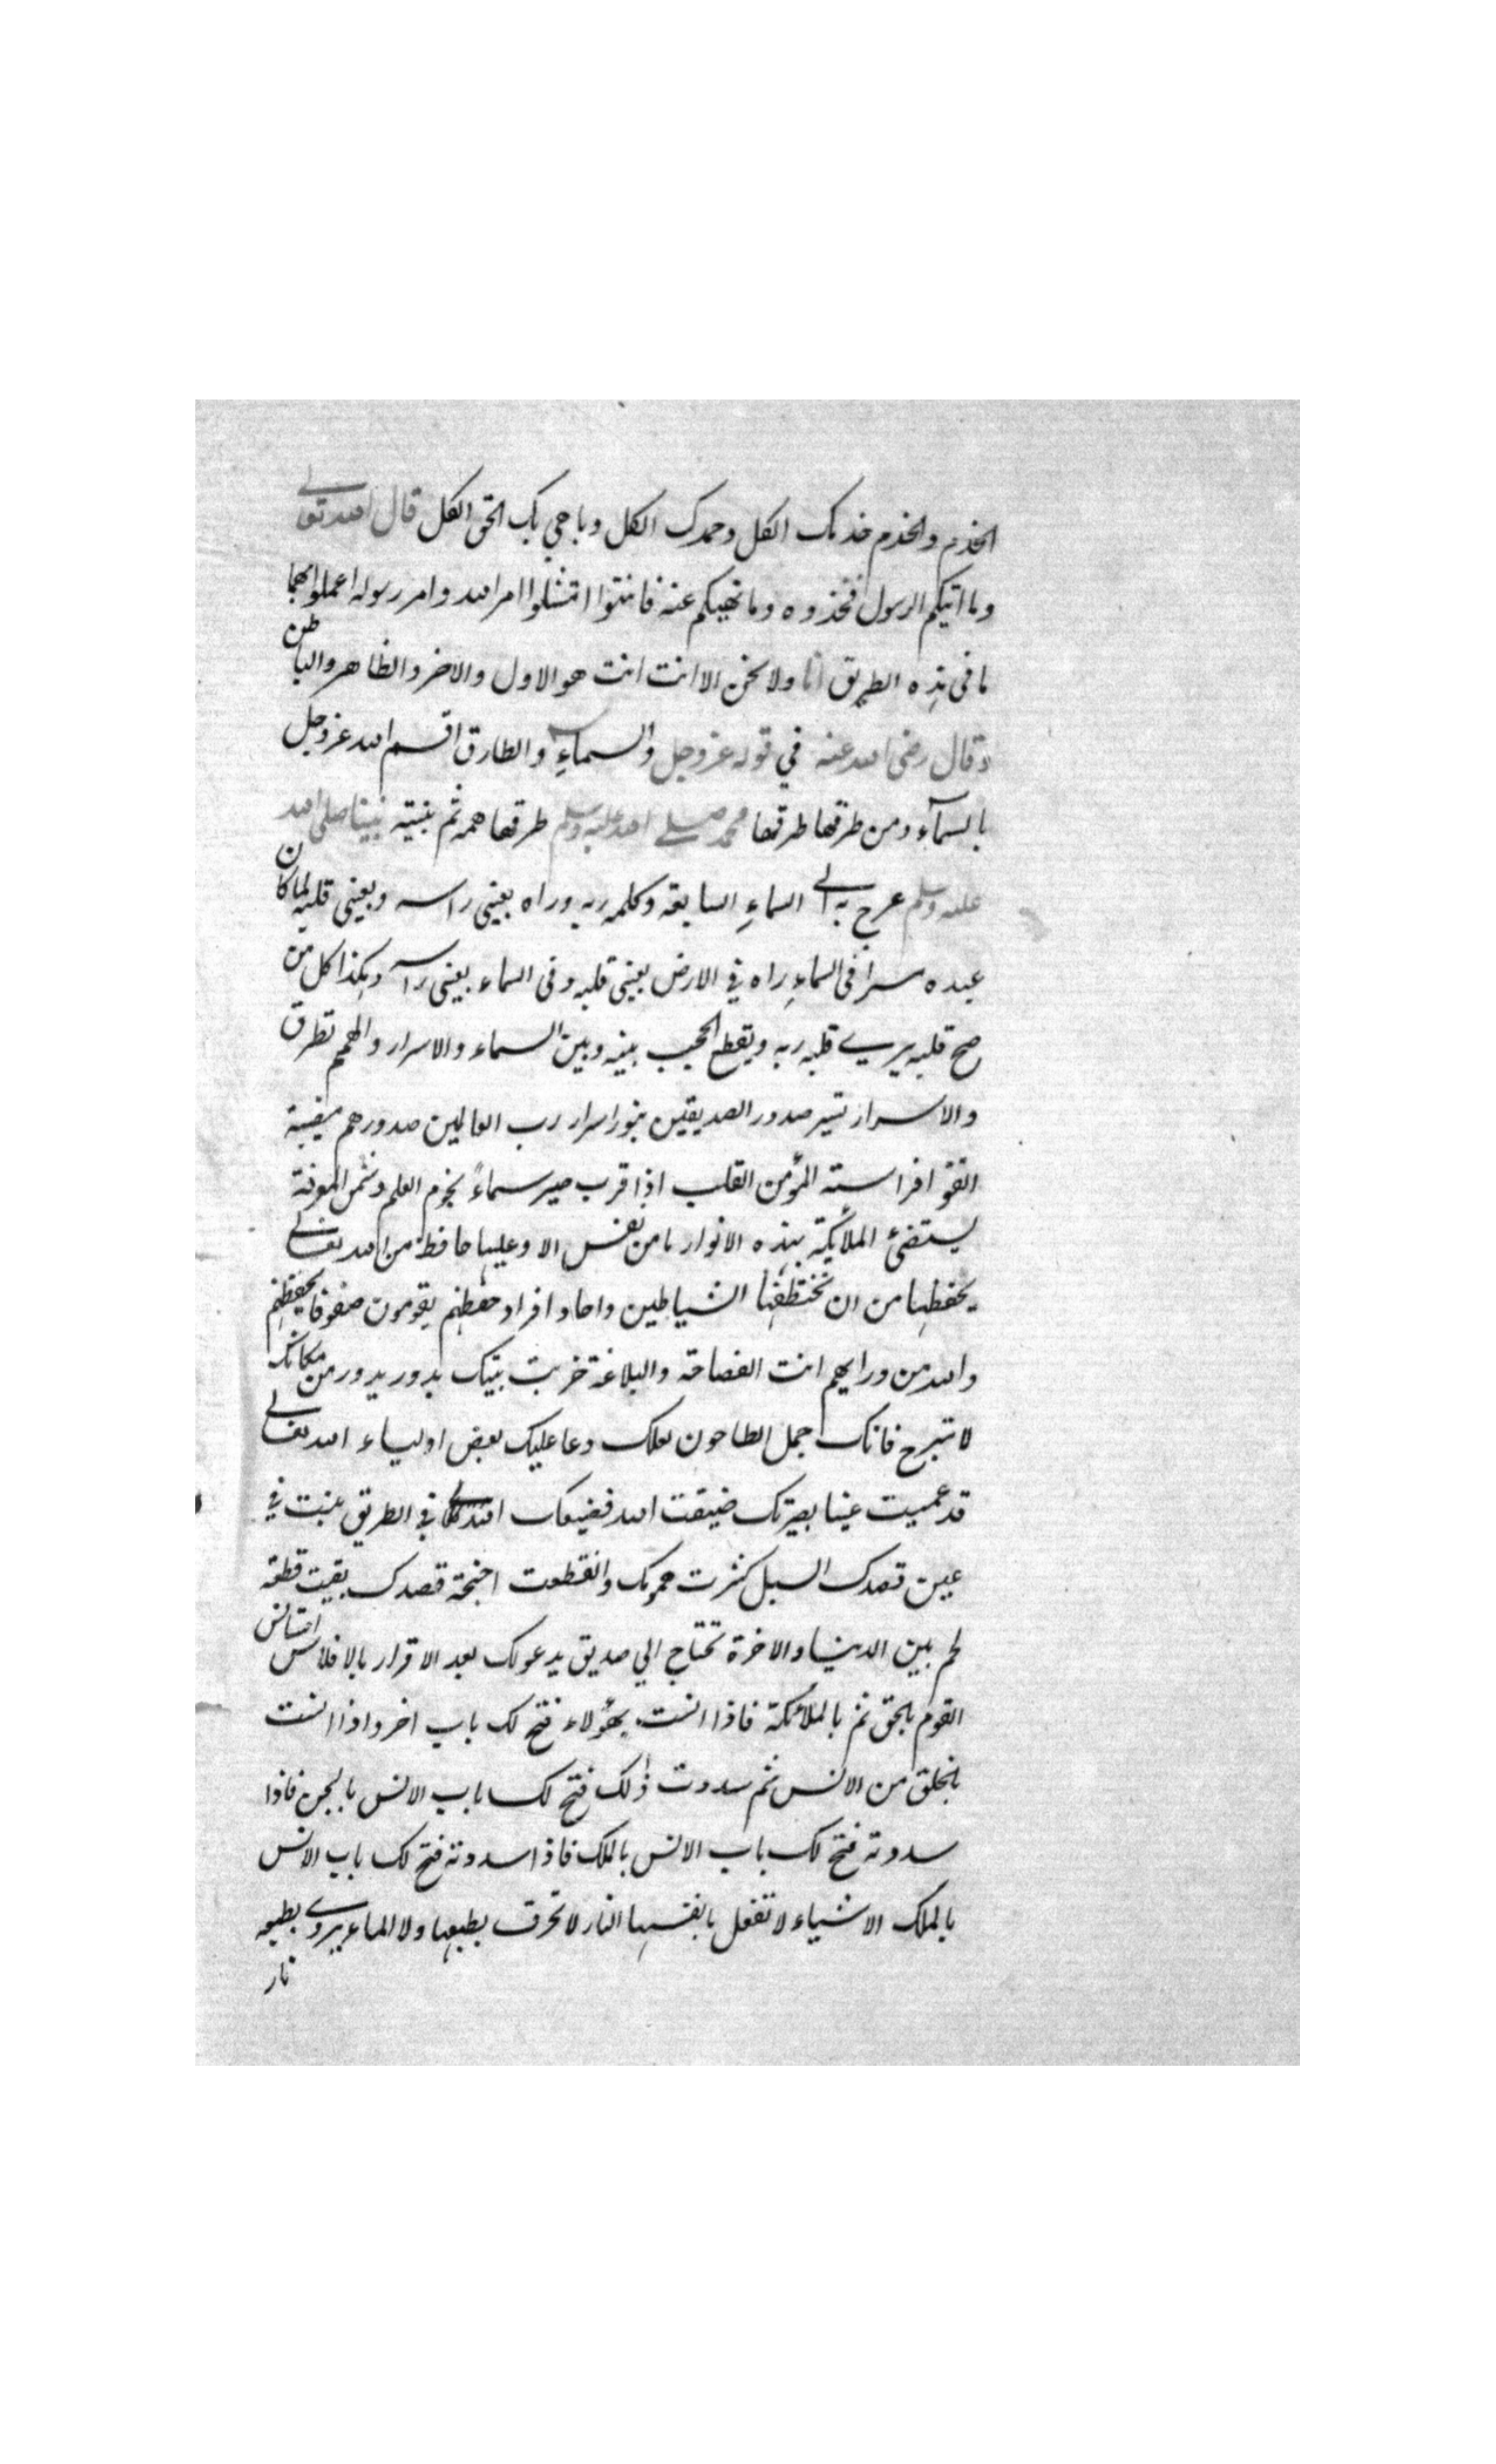 الخدم والخدم خدمك الكل وحمدك الكل وباهي بك الحق الكل قال الله تعالى
وما اتيكم الرسول فخذوه وما نهيكم عنه فانتهوا امتثلوا امر الله وامر رسوله اعملوا بهما
ما في هذه الطريق انا ولا نحن الا انت انت هو الاول والاخر والظاهر والباطن
وقال رضى الله عنه في قوله عز وجل والسماء والطارق اقسم الله عز وجل
بالسماء ومن طرقها طرقها محمد صلى الله عليه وسلم طرقها همه ثم بنيته نبينا صلى الله
عليه وسلم عرج به الى السماء السابعة وكلمه ربه وراه بعيني راسه وبعيني قلبه لما كان
عبده سرا في السماء راه في الارض بعيني قلبه وفى السماء بعيني راسه وهكذا كل من
صح قلبه يرى قلبه ربه ويقطع الحجب بينه وبين السماء والاسرار والهمم تطرق
والاسرار تسير صدور الصديقين بنور اسرار رب العالمين صدورهم مضيئة
اتقوا فراسته المؤمن القلب اذا قرب صير سماءً نجوم العلم وشمس المعرفة
يستضئ الملائكة بهذه الانوار ما من نفس الا وعليها حافظ من الله تعالى
يحفظها من ان تختطفها الشياطين واحاد افراد حفظهم يقومون صفوفا يحفظهم
والله من ورايهم انت الفصاحة والبلاغة خربت بيتك يدور يدور من مكانك
لا تبرح فانك جمل الطاحون لعلك دعا عليك بعض اولياء الله تعالى
قد عميت عينا بصيرتك ضيقت الله فضيعك الله في الطريق بنت في
عين قصدك السبل كثرت همومك وانقطعت اجنحة قصدك بقيت قطعة
لحم بين الدنيا والاخرة تحتاج الي صديق يدعو لك بعد الاقرار بالافلاس استانس
القوم بالحق ثم بالملائكة فاذا انست بهؤلاء فتح لك باب اخر واذا انست
بالخلق من الانس ثم سددت ذلك فتح لك باب الانس بالجن فاذا
سددته فتح لك باب الانس بالملك فاذا سددته فتح لك باب الانس
بالملك الاشياء لا تفعل بانفسها النار لا تحرق بطبعها ولا الماء يروي بطبعه
نار